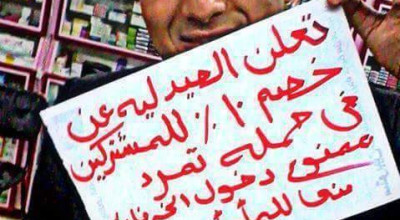 تعلن الصيدليه عن
خصم ١٠٪ للمشتركين
فى حمله تمرد
ممنوع دخول